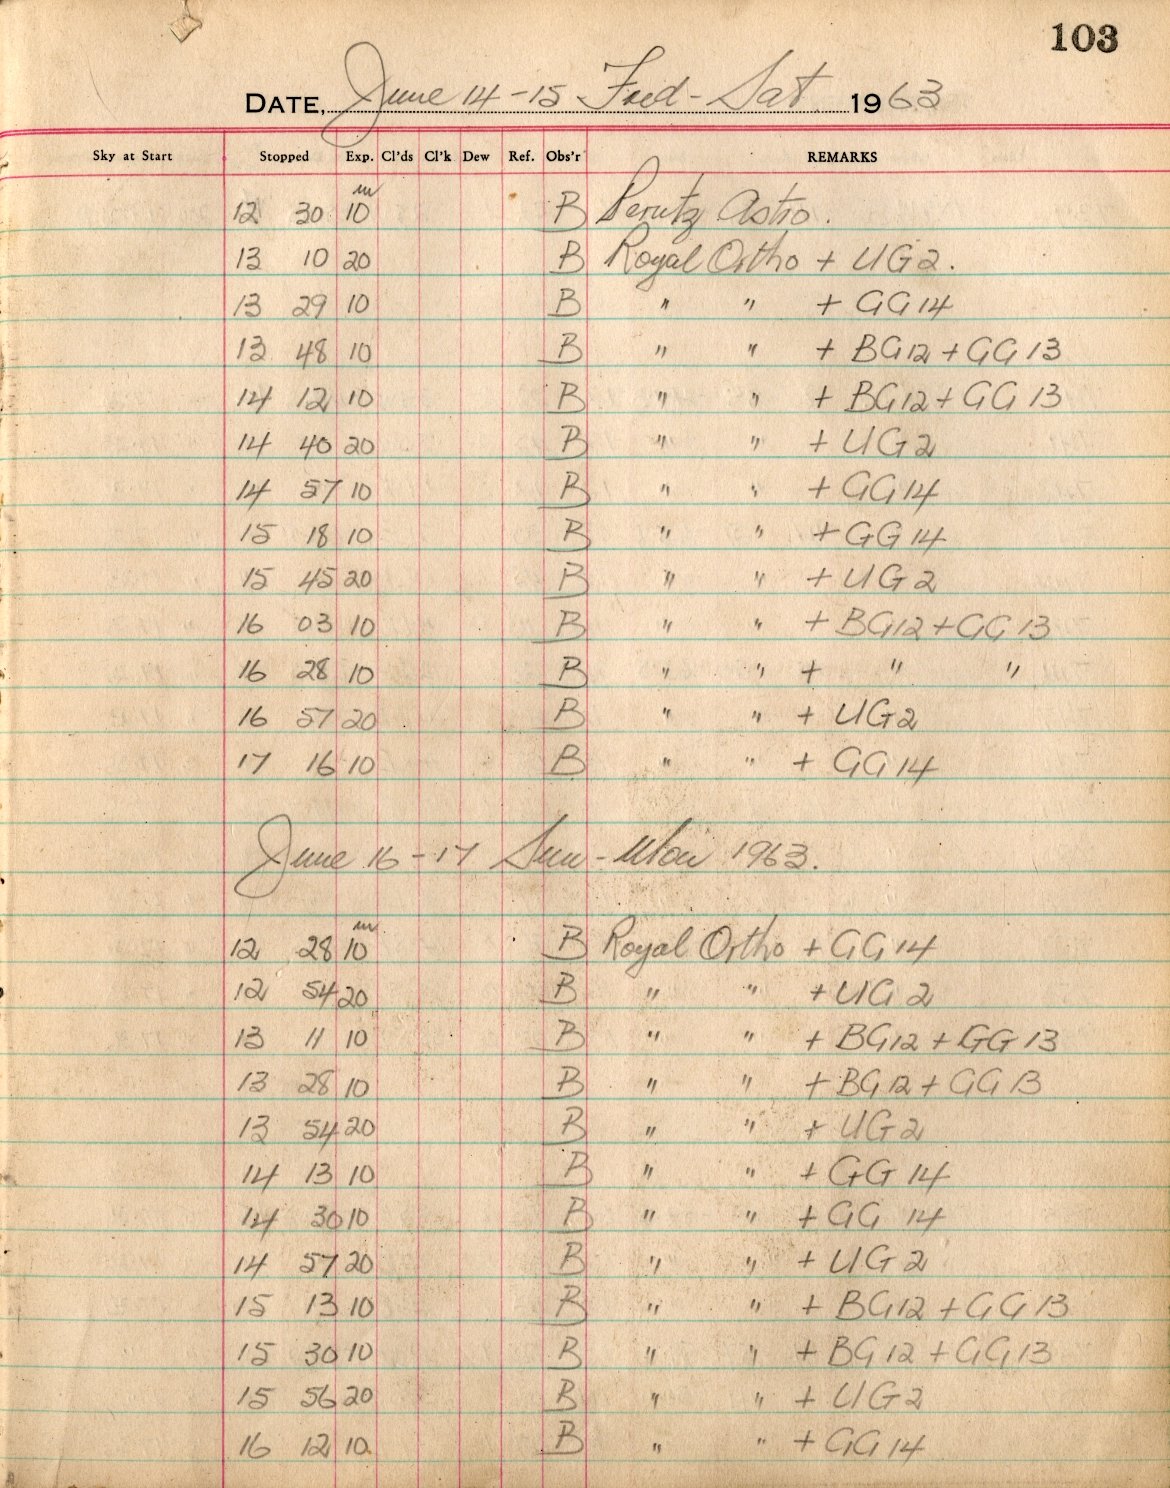 103
DATE, June 14-15 Frid - Sat. 1963
Sky at Start Stopped Exp. Cl'ds Cl'k Dew Ref. Obs'r REMARKS
12 30 10m B Perutz Astro.
13 10 20 B Royal Ortho + UG2.
13 29 10 B " " + GG14
13 48 10 B " " + BG12 + GG13
14 12 10 B " " + BG12 + GG13
14 40 20 B " " + UG2
14 57 10 B " " + GG14
15 18 10 B " " + GG14
15 45 20 B " " + UG2
16 03 10 B " " + BG12 + GG13
16 28 10 B " " + " "
16 57 20 B " " + UG2
17 16 10 B " " + GG14
June 16-17 Sun - Mon 1963.
12 28 10m B Royal Ortho + GG14
12 54 20 B " " + UG2
13 11 10 B " " + BG12 + GG13
13 28 10 B " " + BG12 + GG13
13 54 20 B " " + UG2
14 13 10 B " " + GG14
14 30 10 B " " + GG 14
14 57 20 B " " + UG2
15 13 10 B " " + BG12 + GG13
15 30 10 B " " + BG12 + GG13
15 56 20 B " " + UG2
16 12 10 B " " + GG14